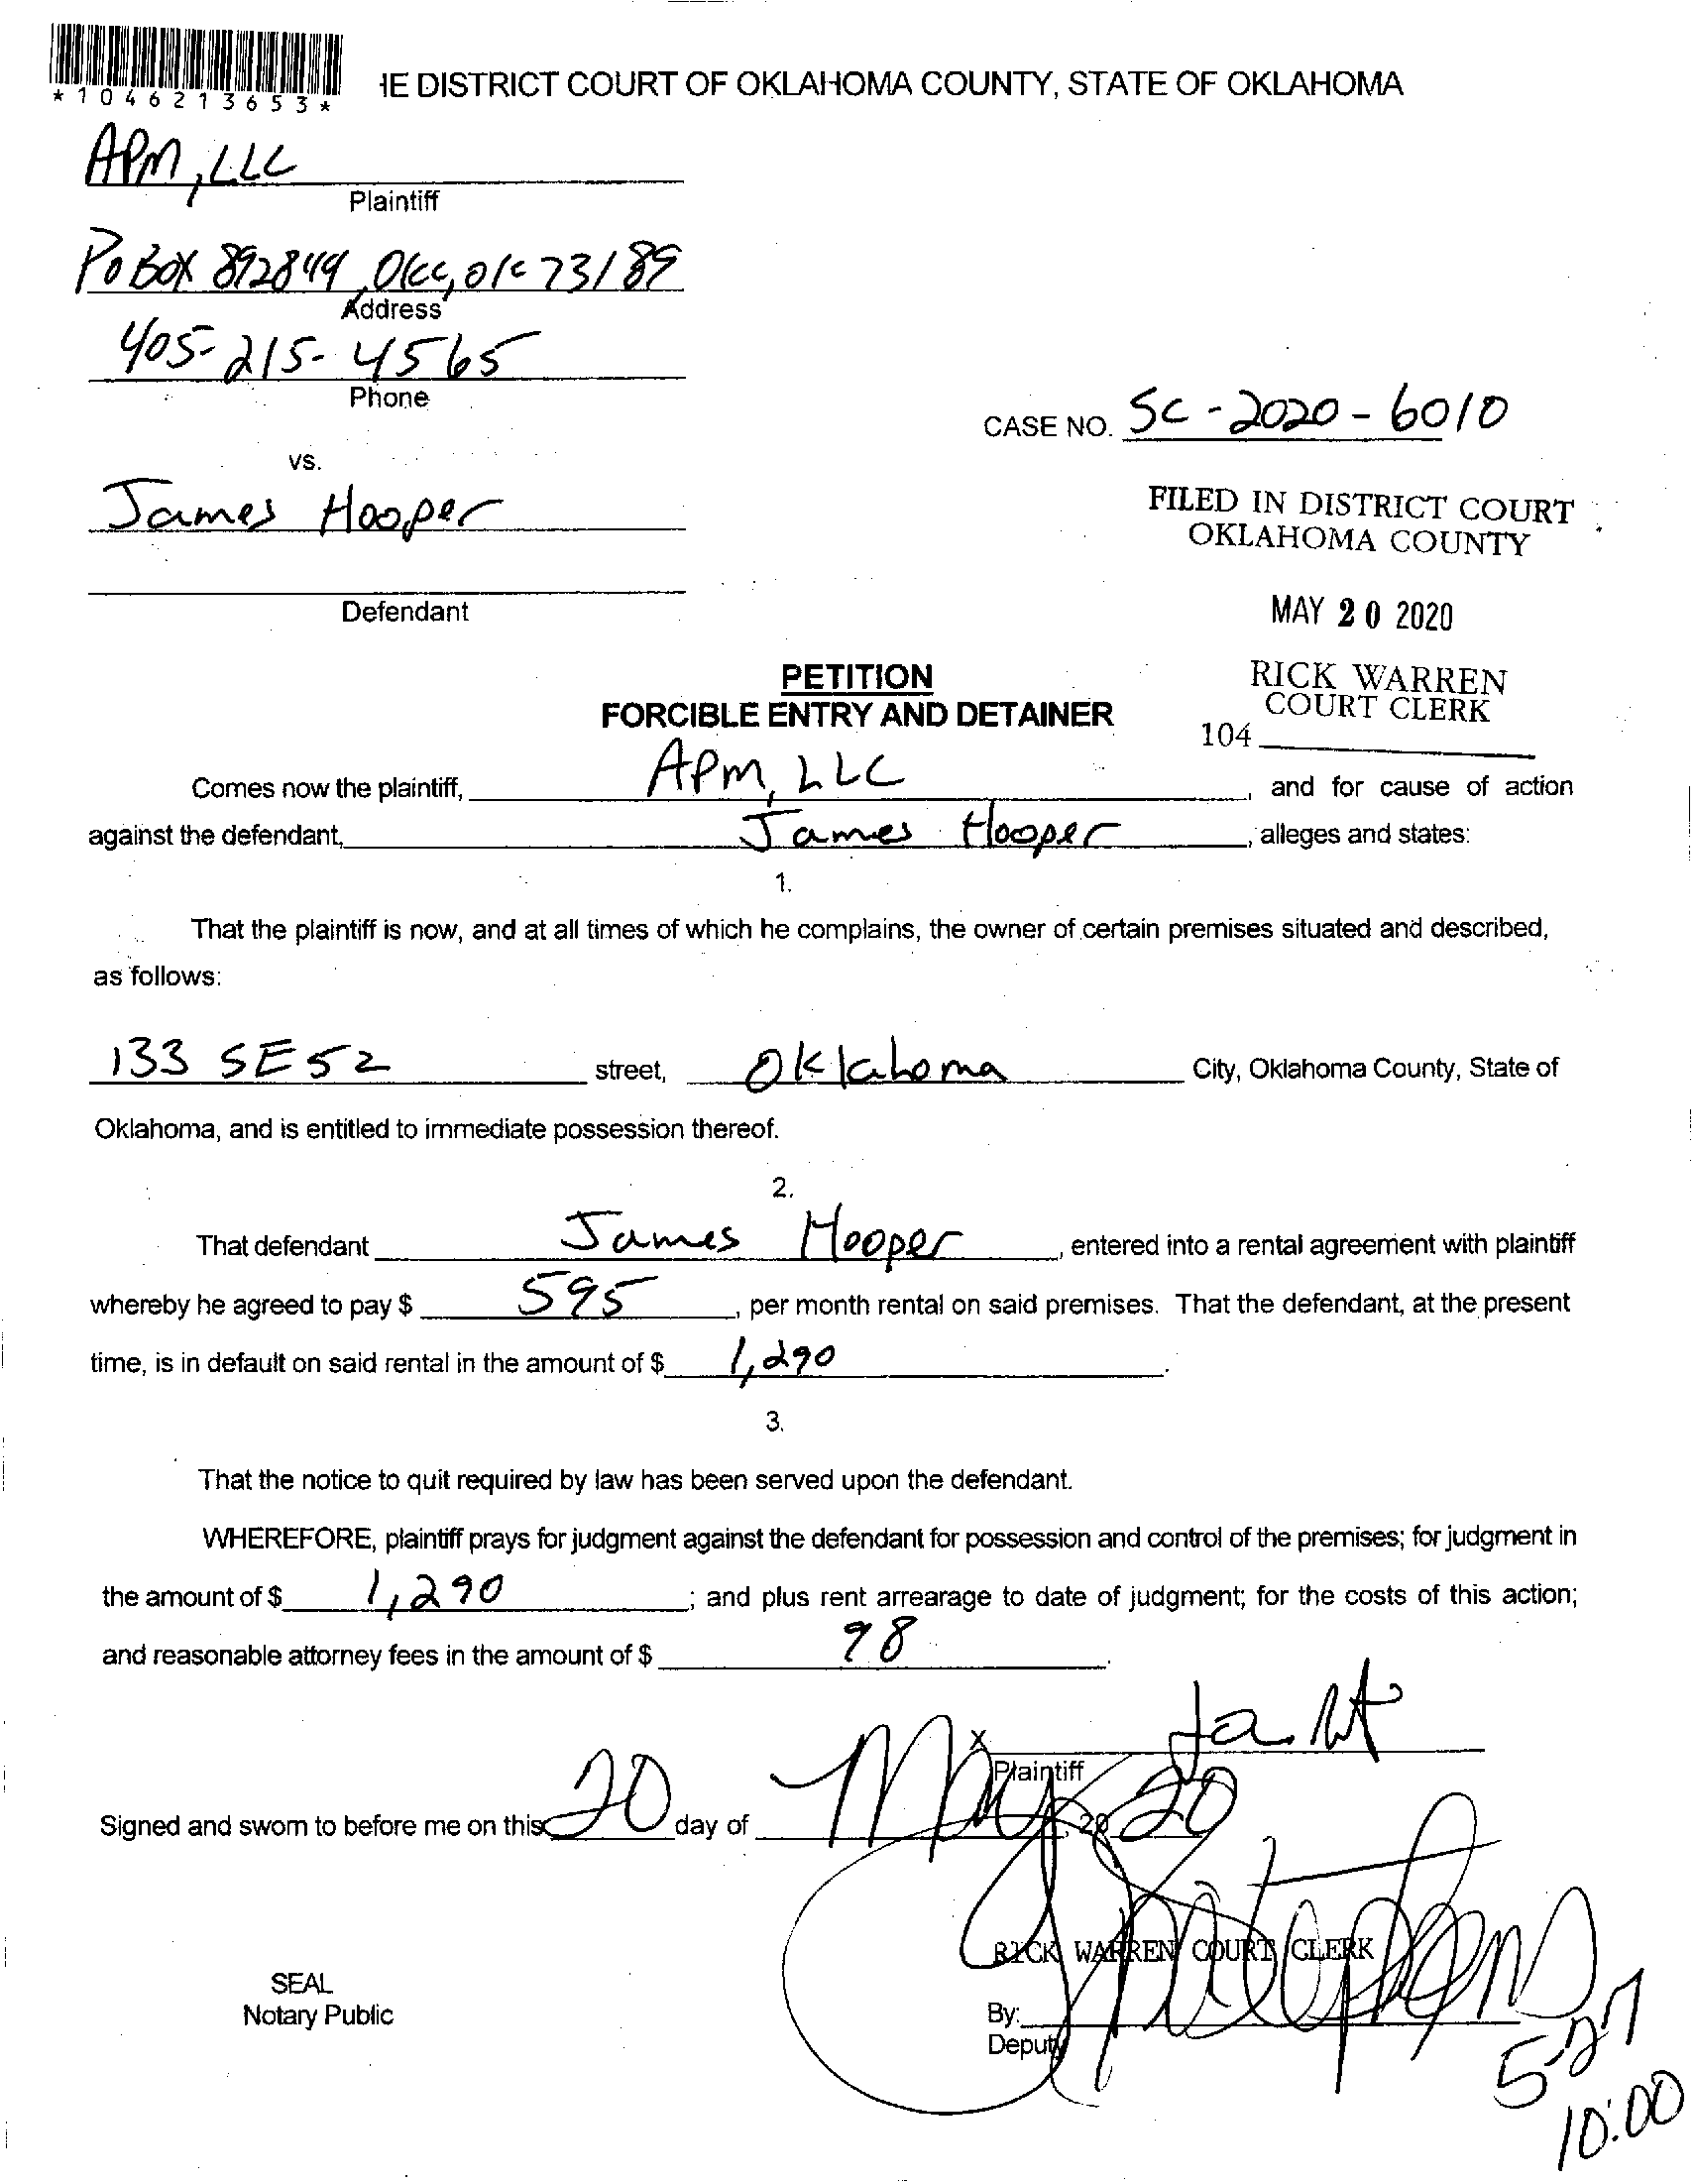 *1046213653*
HE DISTRICT COURT OF OKLAHOMA COUNTY, STATE OF OKLAHOMA
APM, LLC
Plaintiff
PO BOX 892849, OKC, OK 73189
Address
405-215-4565
Phone
CASE NO. SC-2020-6010
vs.
James Hooper
FILED IN DISTRICT COURT
OKLAHOMA COUNTY
Defendant
MAY 20 2020
PETITION
FORCIBLE ENTRY AND DETAINER
RICK WARREN
COURT CLERK
104
Comes now the plaintiff, APM, LLC, and for cause of action
against the defendant, James Hooper, alleges and states:
1.
That the plaintiff is now, and at all times of which he complains, the owner of certain premises situated and described,
as follows:
133 SE 52 street, Oklahoma City, Oklahoma County, State of
Oklahoma, and is entitled to immediate possession thereof.
2.
That defendant James Hooper, entered into a rental agreement with plaintiff
whereby he agreed to pay $ 595, per month rental on said premises. That the defendant, at the present
time, is in default on said rental in the amount of $ 1,290.
3.
That the notice to quit required by law has been served upon the defendant.
WHEREFORE, plaintiff prays for judgment against the defendant for possession and control of the premises; for judgment in
the amount of $ 1,290; and plus rent arrearage to date of judgment; for the costs of this action;
and reasonable attorney fees in the amount of $ 98.
X
Plaintiff
Signed and sworn to before me on this 20 day of May, 20 20
RICK WARREN COURT CLERK
SEAL
Notary Public
By:
Deputy
5-27
10:00